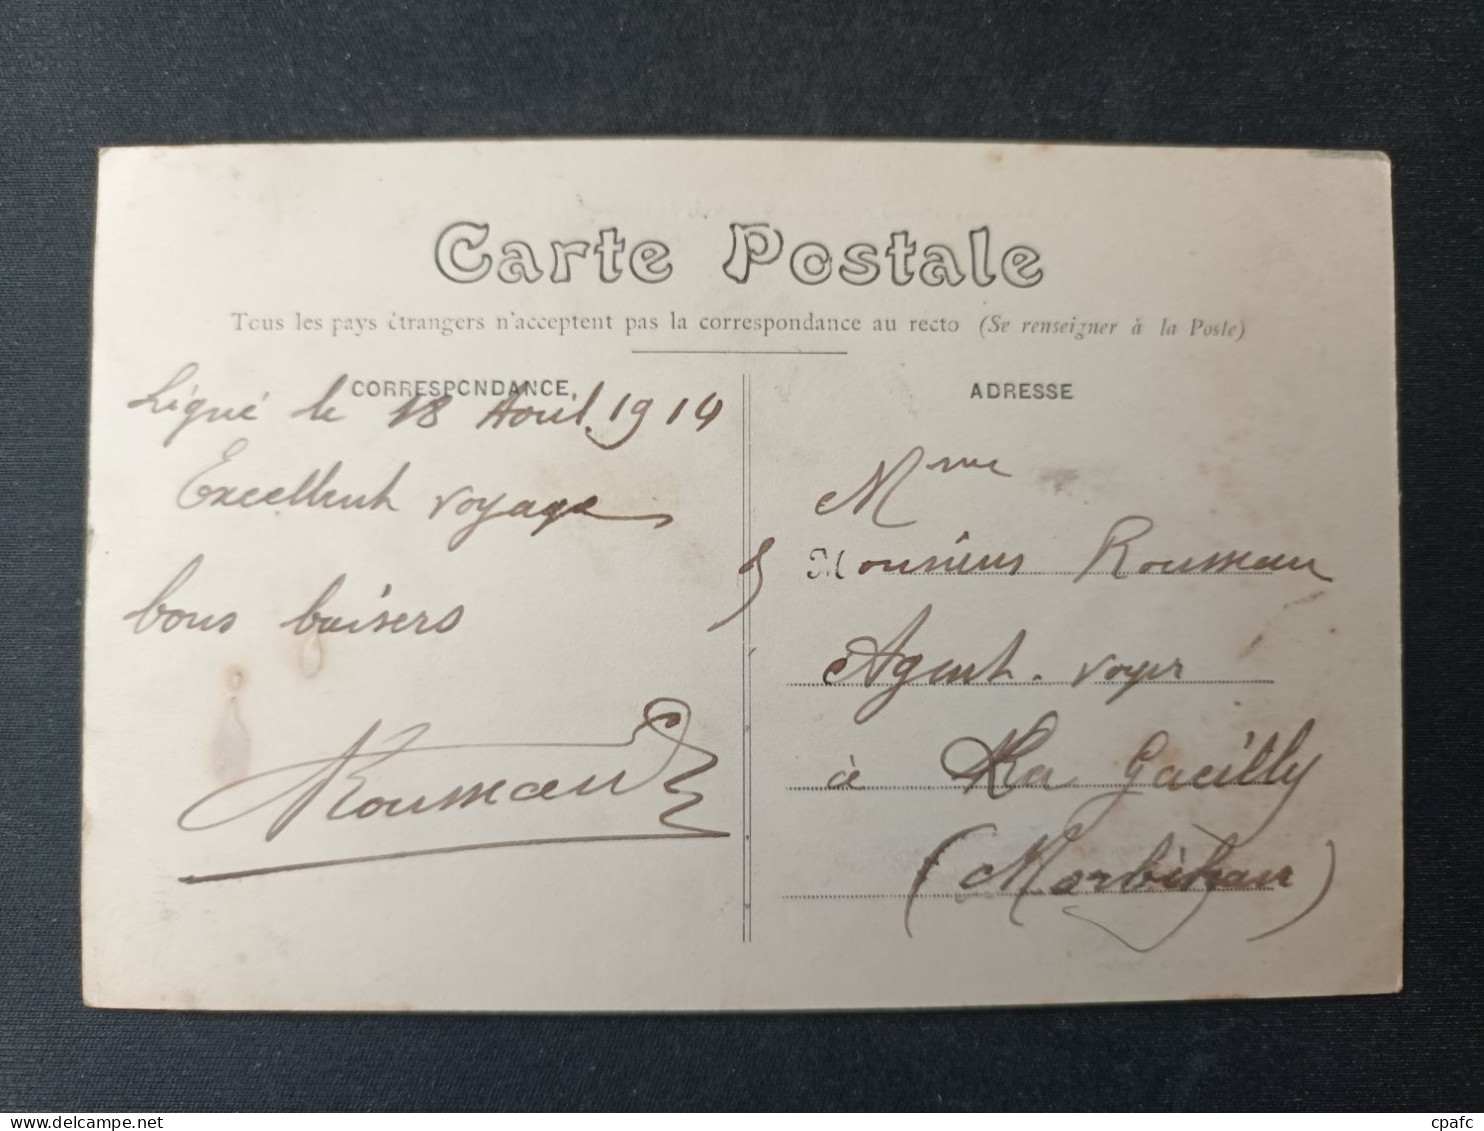 Carte Postale
Tous les pays étrangers n'acceptent pas la correspondance au recto (Se renseigner à la Poste)
CORRESPONDANCE
Ligné le 18 Aout 1914
Excellent voyage
bons baisers
Roumeau
ADRESSE
Mme
& Monsieur Roumeau
Agent-voyer
à La Gacilly
(Morbihan)
cpafc